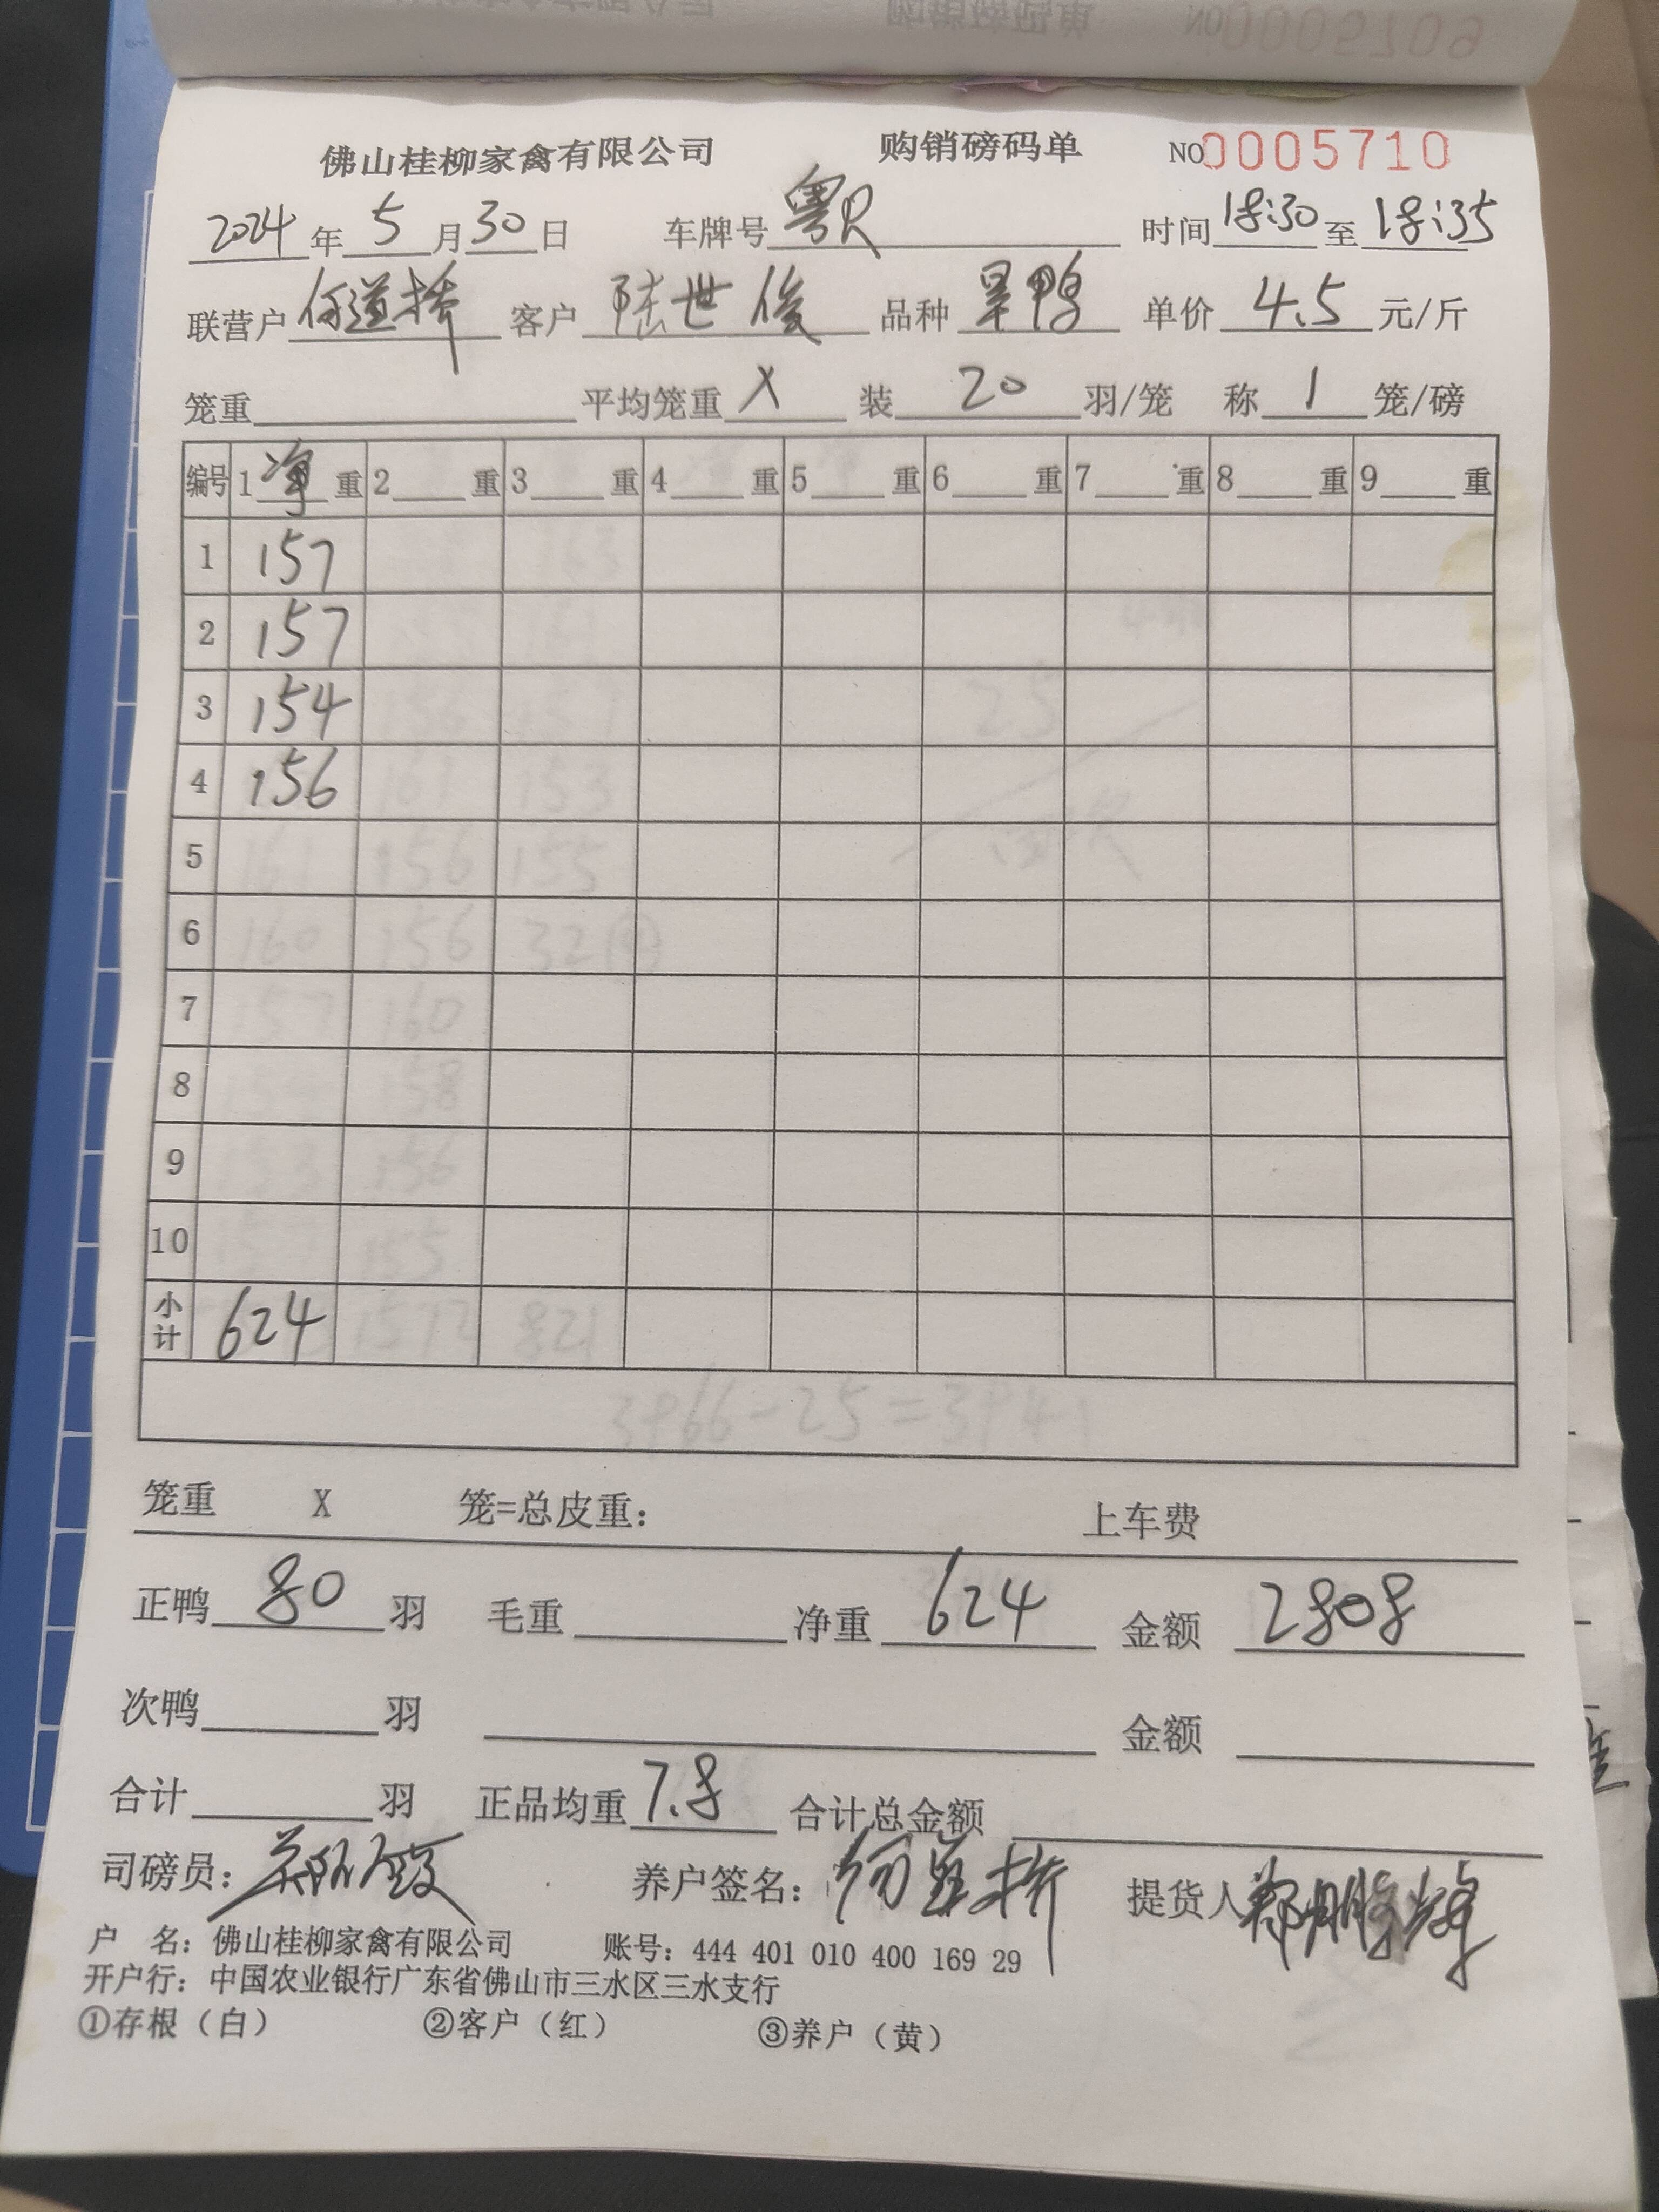 佛山桂柳家禽有限公司 购销磅码单 NO0005710
2024年5月30日 车牌号粤R 时间18:30至18:35
联营户何道桥 客户陆世俊 品种旱鸭 单价4.5元/斤
笼重 平均笼重X 装20羽/笼 称1笼/磅
编号 1净重 2重 3重 4重 5重 6重 7重 8重 9重
1 157
2 157
3 154
4 156
5
6
7
8
9
10
小计 624
笼重 X 笼=总皮重: 上车费
正鸭80羽 毛重 净重624 金额2808
次鸭 羽 金额
合计 羽 正品均重7.8 合计总金额
司磅员: 养户签名: 提货人
户 名: 佛山桂柳家禽有限公司 账号: 444 401 010 400 169 29
开户行: 中国农业银行广东省佛山市三水区三水支行
①存根（白） ②客户（红） ③养户（黄）